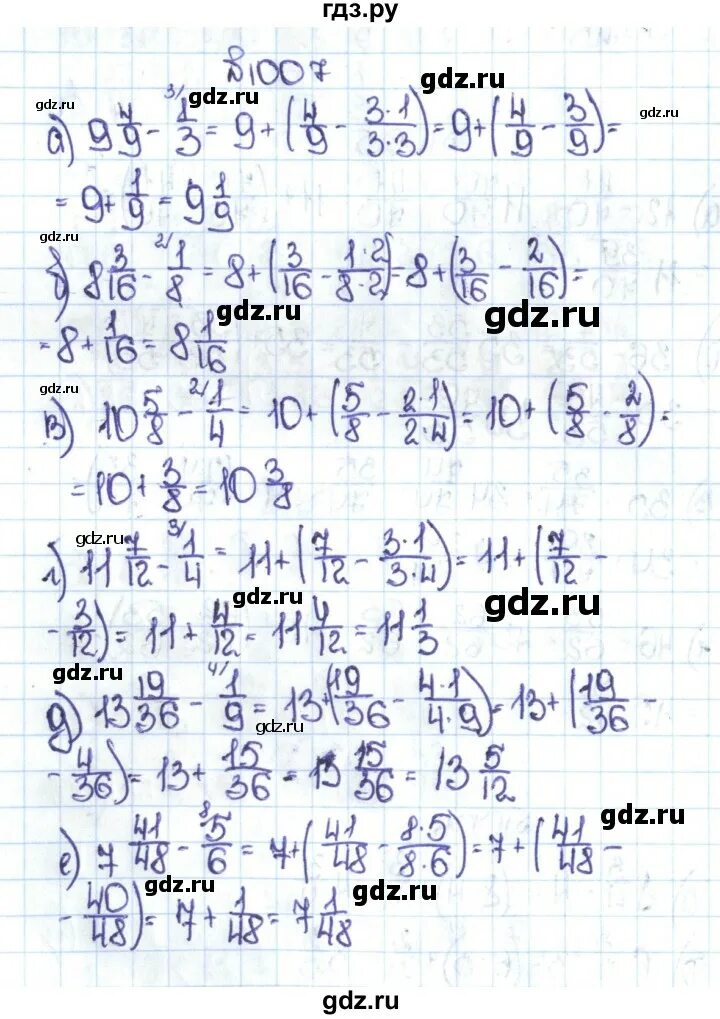 гдз.ру
№1007
gdz.ru gdz.ru gdz.ru gdz.ru
а) 9 4/9 - ³⁾1/3 = 9 + (4/9 - 3·1/3·3) = 9 + (4/9 - 3/9) =
= 9 + 1/9 = 9 1/9
gdz.ru
б) 8 3/16 - ²⁾1/8 = 8 + (3/16 - 1·2/8·2) = 8 + (3/16 - 2/16) =
gdz.ru gdz.ru
= 8 + 1/16 = 8 1/16
gdz.ru
в) 10 5/8 - ²⁾1/4 = 10 + (5/8 - 2·1/2·4) = 10 + (5/8 - 2/8) =
= 10 + 3/8 = 10 3/8
gdz.ru
г) 11 7/12 - ³⁾1/4 = 11 + (7/12 - 3·1/3·4) = 11 + (7/12 -
gdz.ru gdz.ru
- 3/12) = 11 + 4/12 = 11 4/12 = 11 1/3
gdz.ru
д) 13 19/36 - ⁴⁾1/9 = 13 + (19/36 - 4·1/4·9) = 13 + (19/36 -
gdz.ru
- 4/36) = 13 + 15/36 = 13 15/36 = 13 5/12
gdz.ru
е) 7 41/48 - ⁸⁾5/6 = 7 + (41/48 - 8·5/8·6) = 7 + (41/48 -
gdz.ru
- 40/48) = 7 + 1/48 = 7 1/48
gdz.ru
gdz.ru